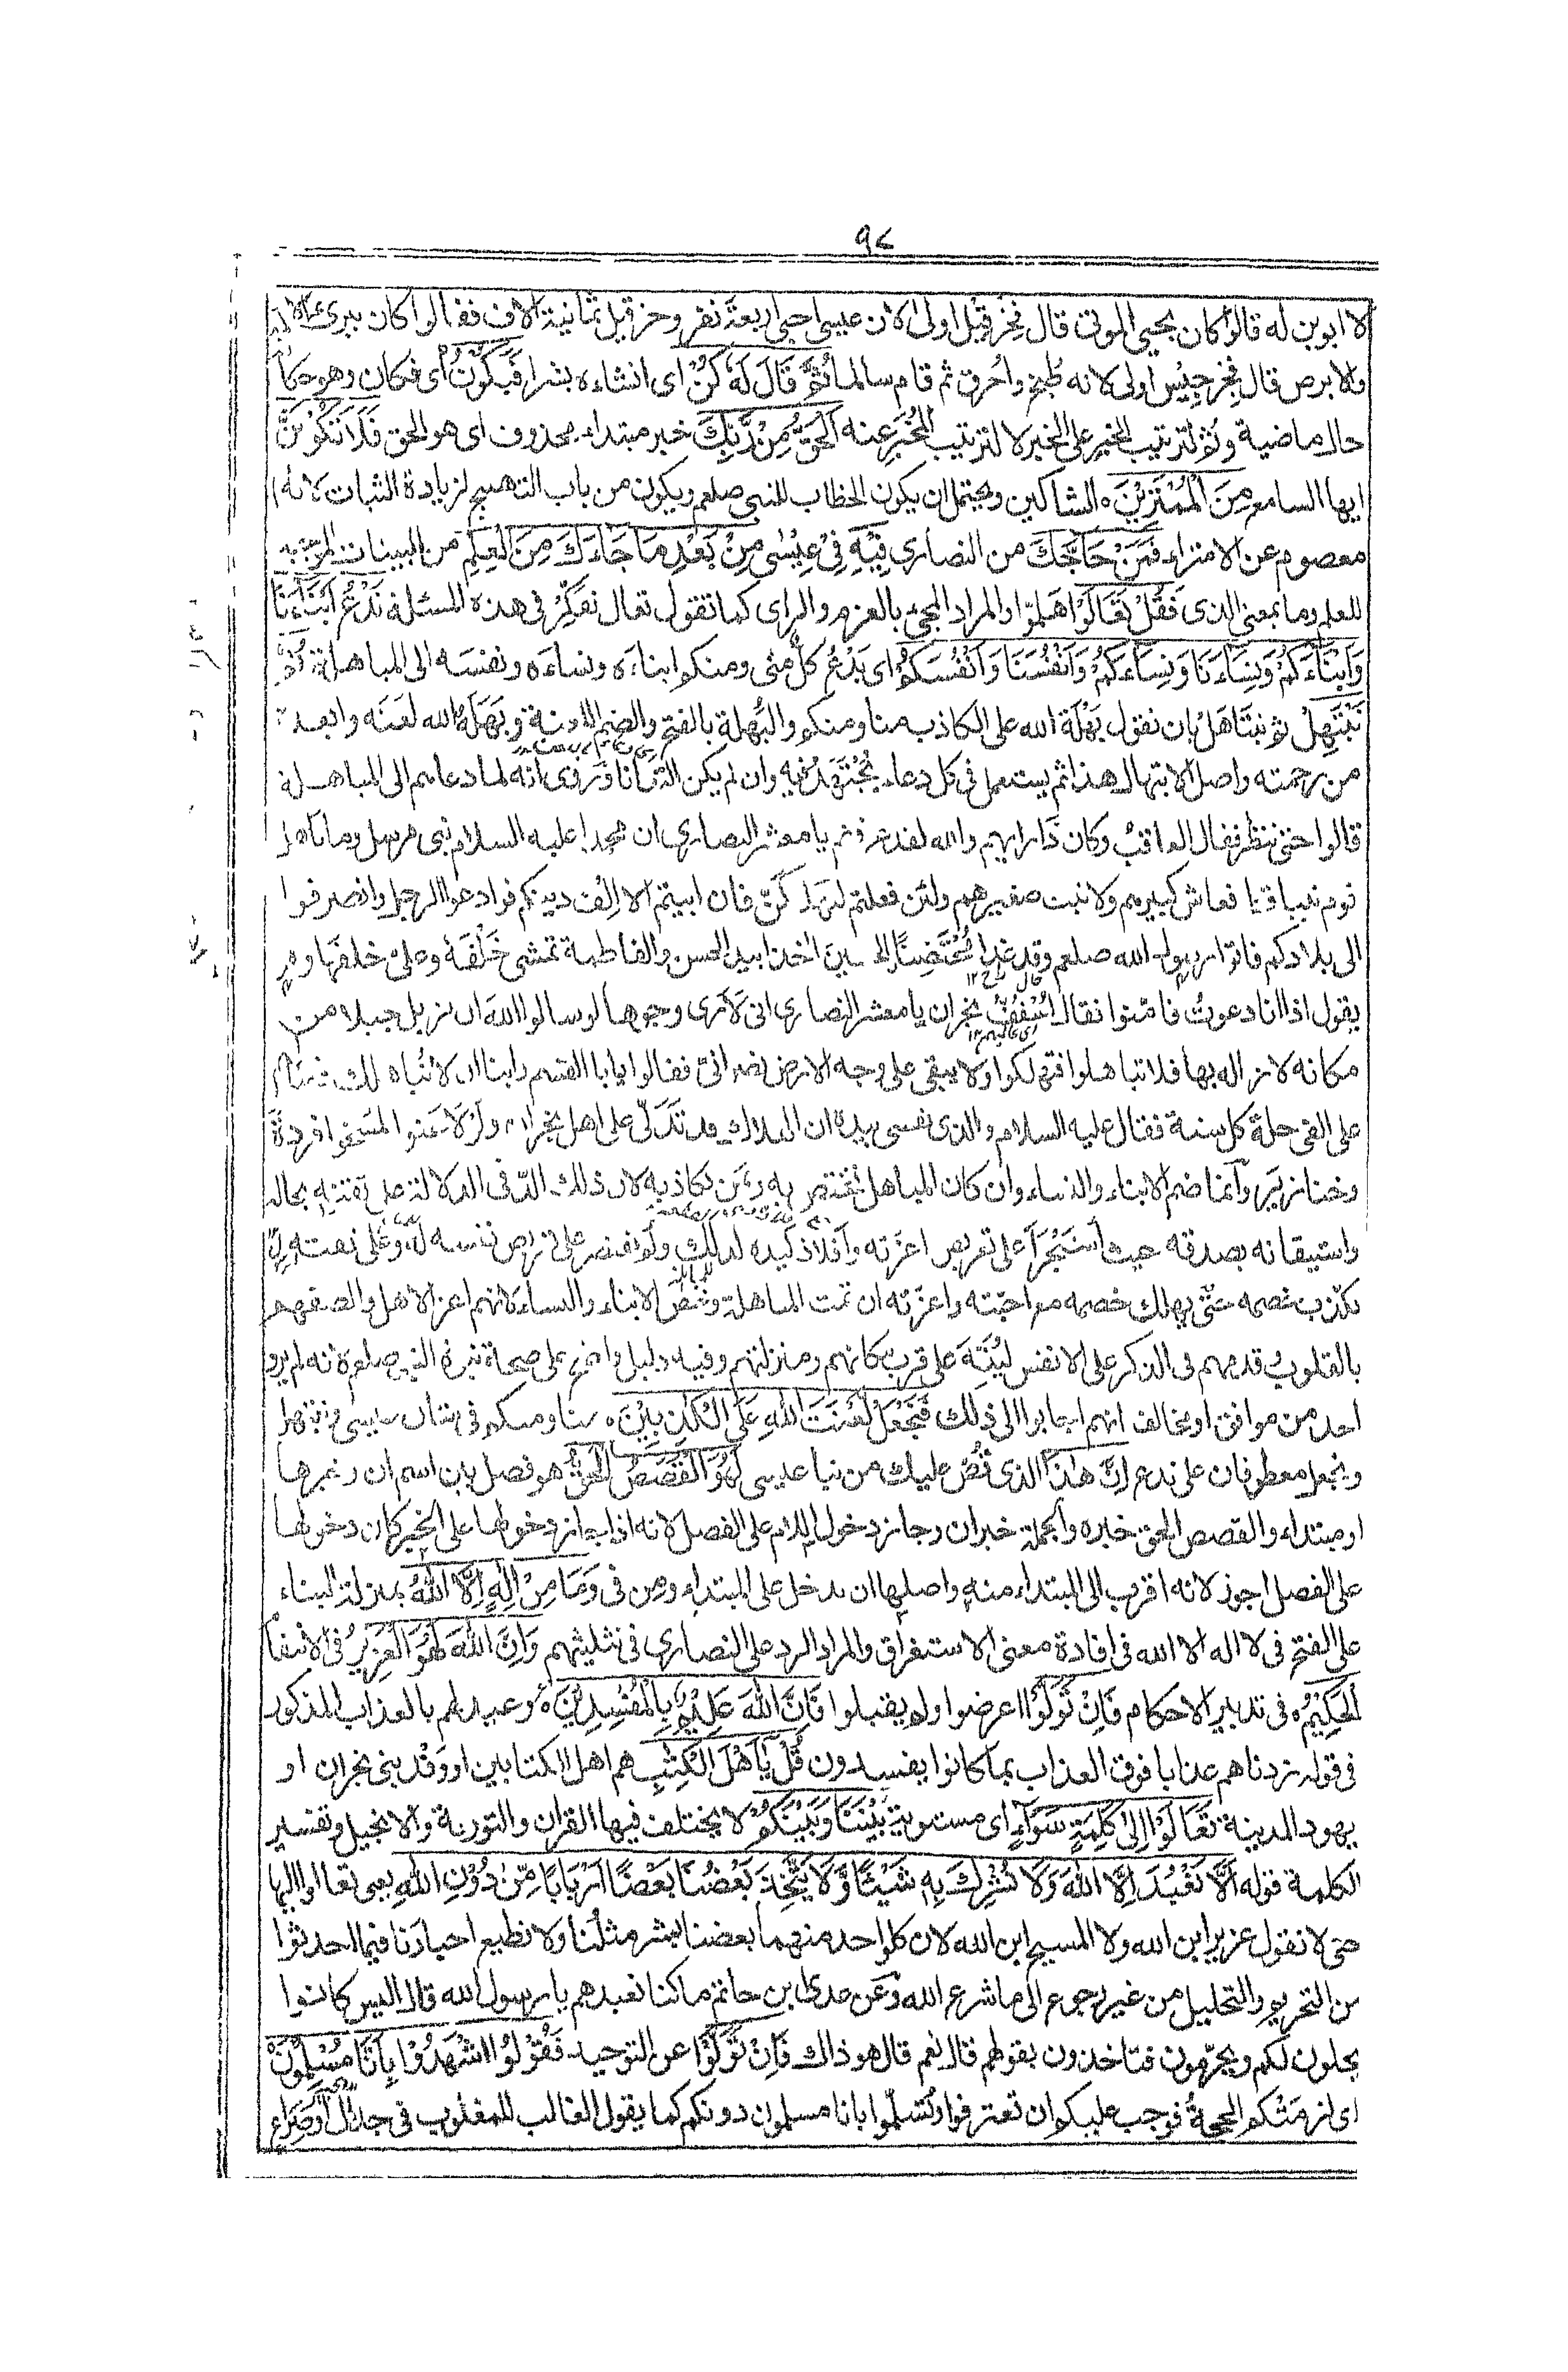 ٩٤
لا ابوين له قالوا كان يحيي الموتى قال فحزقيل اولى لان عيسى احيى اربعة نفر وحزقيل ثمانية الاف فقالوا كان يبرئ الاكمه
والابرص قال فجرجيس اولى لانه طُبخ واُحرق ثم قام سالما ثُمَّ قَالَ لَهٗ كُنْ اى انشاءه بشرا فَيَكُوْنُ اى فكان وهو حكاية
حال ماضية وثم لترتيب الخبر على الخبر لا لترتيب المُخبَر عنه اَلْحَقُّ مِنْ رَّبِّكَ خبر مبتداء محذوف اى هو الحق فَلَا تَكُوْنَنَّ
ايها السامع مِنَ الْمُمْتَرِيْنَ ه الشاكين ويحتمل ان يكون الخطاب للنبى صلعم ويكون من باب التهييج لزيادة الثبات لانه
معصوم عن الامتراء فَمَنْ حَآجَّكَ من النصارى فِيْهِ فِىْ عِيْسٰى مِنْ بَعْدِ مَا جَآءَكَ مِنَ الْعِلْمِ من البينات الموجبة
للعلم وما بمعنى الذى فَقُلْ تَعَالَوْا هَلمّوا والمراد المجئ بالعزم والراى كما تقول تعال نفكّر فى هذه المسئلة نَدْعُ اَبْنَآءَنَا
وَاَبْنَآءَكُمْ وَنِسَآءَنَا وَنِسَآءَكُمْ وَاَنْفُسَنَا وَاَنْفُسَكُمْ اى يَدْعُ كلٌّ منى ومنكم ابناءه ونساءه ونفسَه الى المباهلة ثُمَّ
نَبْتَهِلْ ثم نتباهَلْ بان نقول بَهْلَة الله على الكاذب منا ومنكم والبُهلة بالفتح والضم اللعنة وبَهَلَهُ الله لعَنَه وابعده
من رحمته واصل الابتهال هذا ثم يستعمل فى كل دعاء يُجْتَهَدُ فيه وان لم يكن التعانا وَرُوى انه لما دعاهم الى المباهلة
قالوا حتى ننظر فقال العاقبُ وكان ذا رايهم والله لقد عرفتم يا معشر النصارى ان محمدا عليه السلام نبى مرسل وما باهل
قوم نبيا قط فعاش كبيرهم ولا نبت صغيرهم ولئن فعلتم لتهلكنّ فان ابيتم الا اِلْف دينكم فوادعوا الرجل وانصرفوا
الى بلادكم فاتوا رسول الله صلعم وقد غدا مُحْتَضِنًا للحسين اٰخذا بيد الحسن والفاطمة تمشى خَلْفَهٗ وعلى خلفَها وهو
يقول اذا انا دعوتُ فامّنوا فقال اُسْقُفُّ نجران يا معشر النصارى انى لَاَرى وجوها لو سالوا الله ان يزيل جبلا من
مكانه لازاله بها فلا تباهلوا فتهلكوا ولا يبقى على وجه الارض نصرانىّ فقالوا يا ابا القسم راينا ان لا نُباهلك
على الفى حلة كل سنة فقال عليه السلام والذى نفسى بيده ان الهلاك قد تَدَلّٰى على اهل نجران ولو لاعنوا لمسخوا قردة
وخنازير وانما ضم الابناء والنساء وان كان المباهلة تختص به وبمَن يكاذبه لان ذلك اٰكد فى الدلالة على ثقته بحاله
واستيقانه بصدقه حيث اسْتَجْرَأَ على تعريض اعزّته وافلاذ كبده لذلك ولم يقتصر على تعريض نفسه له وعلى ثقته
بكذب خصمه حتّى يهلك خصمه مع احبّته واعزّته ان تمت المباهلة وخُصّ الابناء والنساء لانهم اعز الاهل والصقهم
بالقلوب وقدمهم فى الذكر على الانفس ليُنَبِّهَ على قرب مكانهم ومنزلتهم وفيه دليل واضح على صحة نبوة النبى صلعم لانه لم يرو
احد من موافق او مخالف انهم اجابوا الى ذلك فَنَجْعَلْ لَّعْنَتَ اللّٰهِ عَلَى الْكٰذِبِيْنَ ه منا ومنكم فى شان عيسى ونبتهل
ونجعل معطوفان على ندع اِنَّ هٰذَا الذى قُصّ عليك من نبا عيسى لَهُوَ الْقَصَصُ الْحَقُّ هو فصل بين اسم ان وخبرها
او مبتداء والقصص الحق خبره والجملة خبر ان وجاز دخول اللام على الفصل لانه اذا جاز دخولها على الخبر كان دخولها
على الفصل اجوز لانه اقرب الى المبتداء منه واصلها ان تدخل على المبتداء ومن فى وَمَا مِنْ اِلٰهٍ اِلَّا اللّٰهُ بمنزلة البناء
على الفتح فى لا اله الا الله فى افادة معنى الاستغراق والمراد الرد على النصارى فى تثليثهم وَاِنَّ اللّٰهَ لَهُوَ الْعَزِيْزُ فى الانتقام
الْحَكِيْمُ ه فى تدبير الاحكام فَاِنْ تَوَلَّوْا اعرضوا ولم يقبلوا فَاِنَّ اللّٰهَ عَلِيْمٌ بِالْمُفْسِدِيْنَ ه وعيد لهم بالعذاب المذكور
فى قوله زدناهم عذابا فوق العذاب بما كانوا يفسدون قُلْ يٰٓاَهْلَ الْكِتٰبِ هم اهل الكتابين او وفد بنى نجران او
يهود المدينة تَعَالَوْا اِلٰى كَلِمَةٍ سَوَآءٍ اى مستوية بَيْنَنَا وَبَيْنَكُمْ لا يختلف فيها القران والتورٰية والانجيل وتفسير
الكلمة قوله اَلَّا نَعْبُدَ اِلَّا اللّٰهَ وَلَا نُشْرِكَ بِهٖ شَيْئًا وَّلَا يَتَّخِذَ بَعْضُنَا بَعْضًا اَرْبَابًا مِّنْ دُوْنِ اللّٰهِ يعنى تعالوا اليها
حتى لا نقول عزير ابن الله ولا المسيح ابن الله لان كل واحد منهما بعضنا بشر مثلُنا ولا نطيع احبارَنا فيما احدثوا
من التحريم والتحليل من غير رجوع الى ما شرع الله وَعَن عدى بن حاتم ما كنا نعبدهم يا رسول الله قال اليس كانوا
يحلون لكم ويحرّمون فتاخذون بقولهم قال نعم قال هو ذاك فَاِنْ تَوَلَّوْا عن التوحيد فَقُوْلُوا اشْهَدُوْا بِاَنَّا مُسْلِمُوْنَ ه
اى لزمَتْكم الحجةُ فوجب عليكم ان تعترفوا وتُسَلّموا بانا مسلمون دونكم كما يقول الغالب للمغلوب فى جدال او صِرَاعٍ